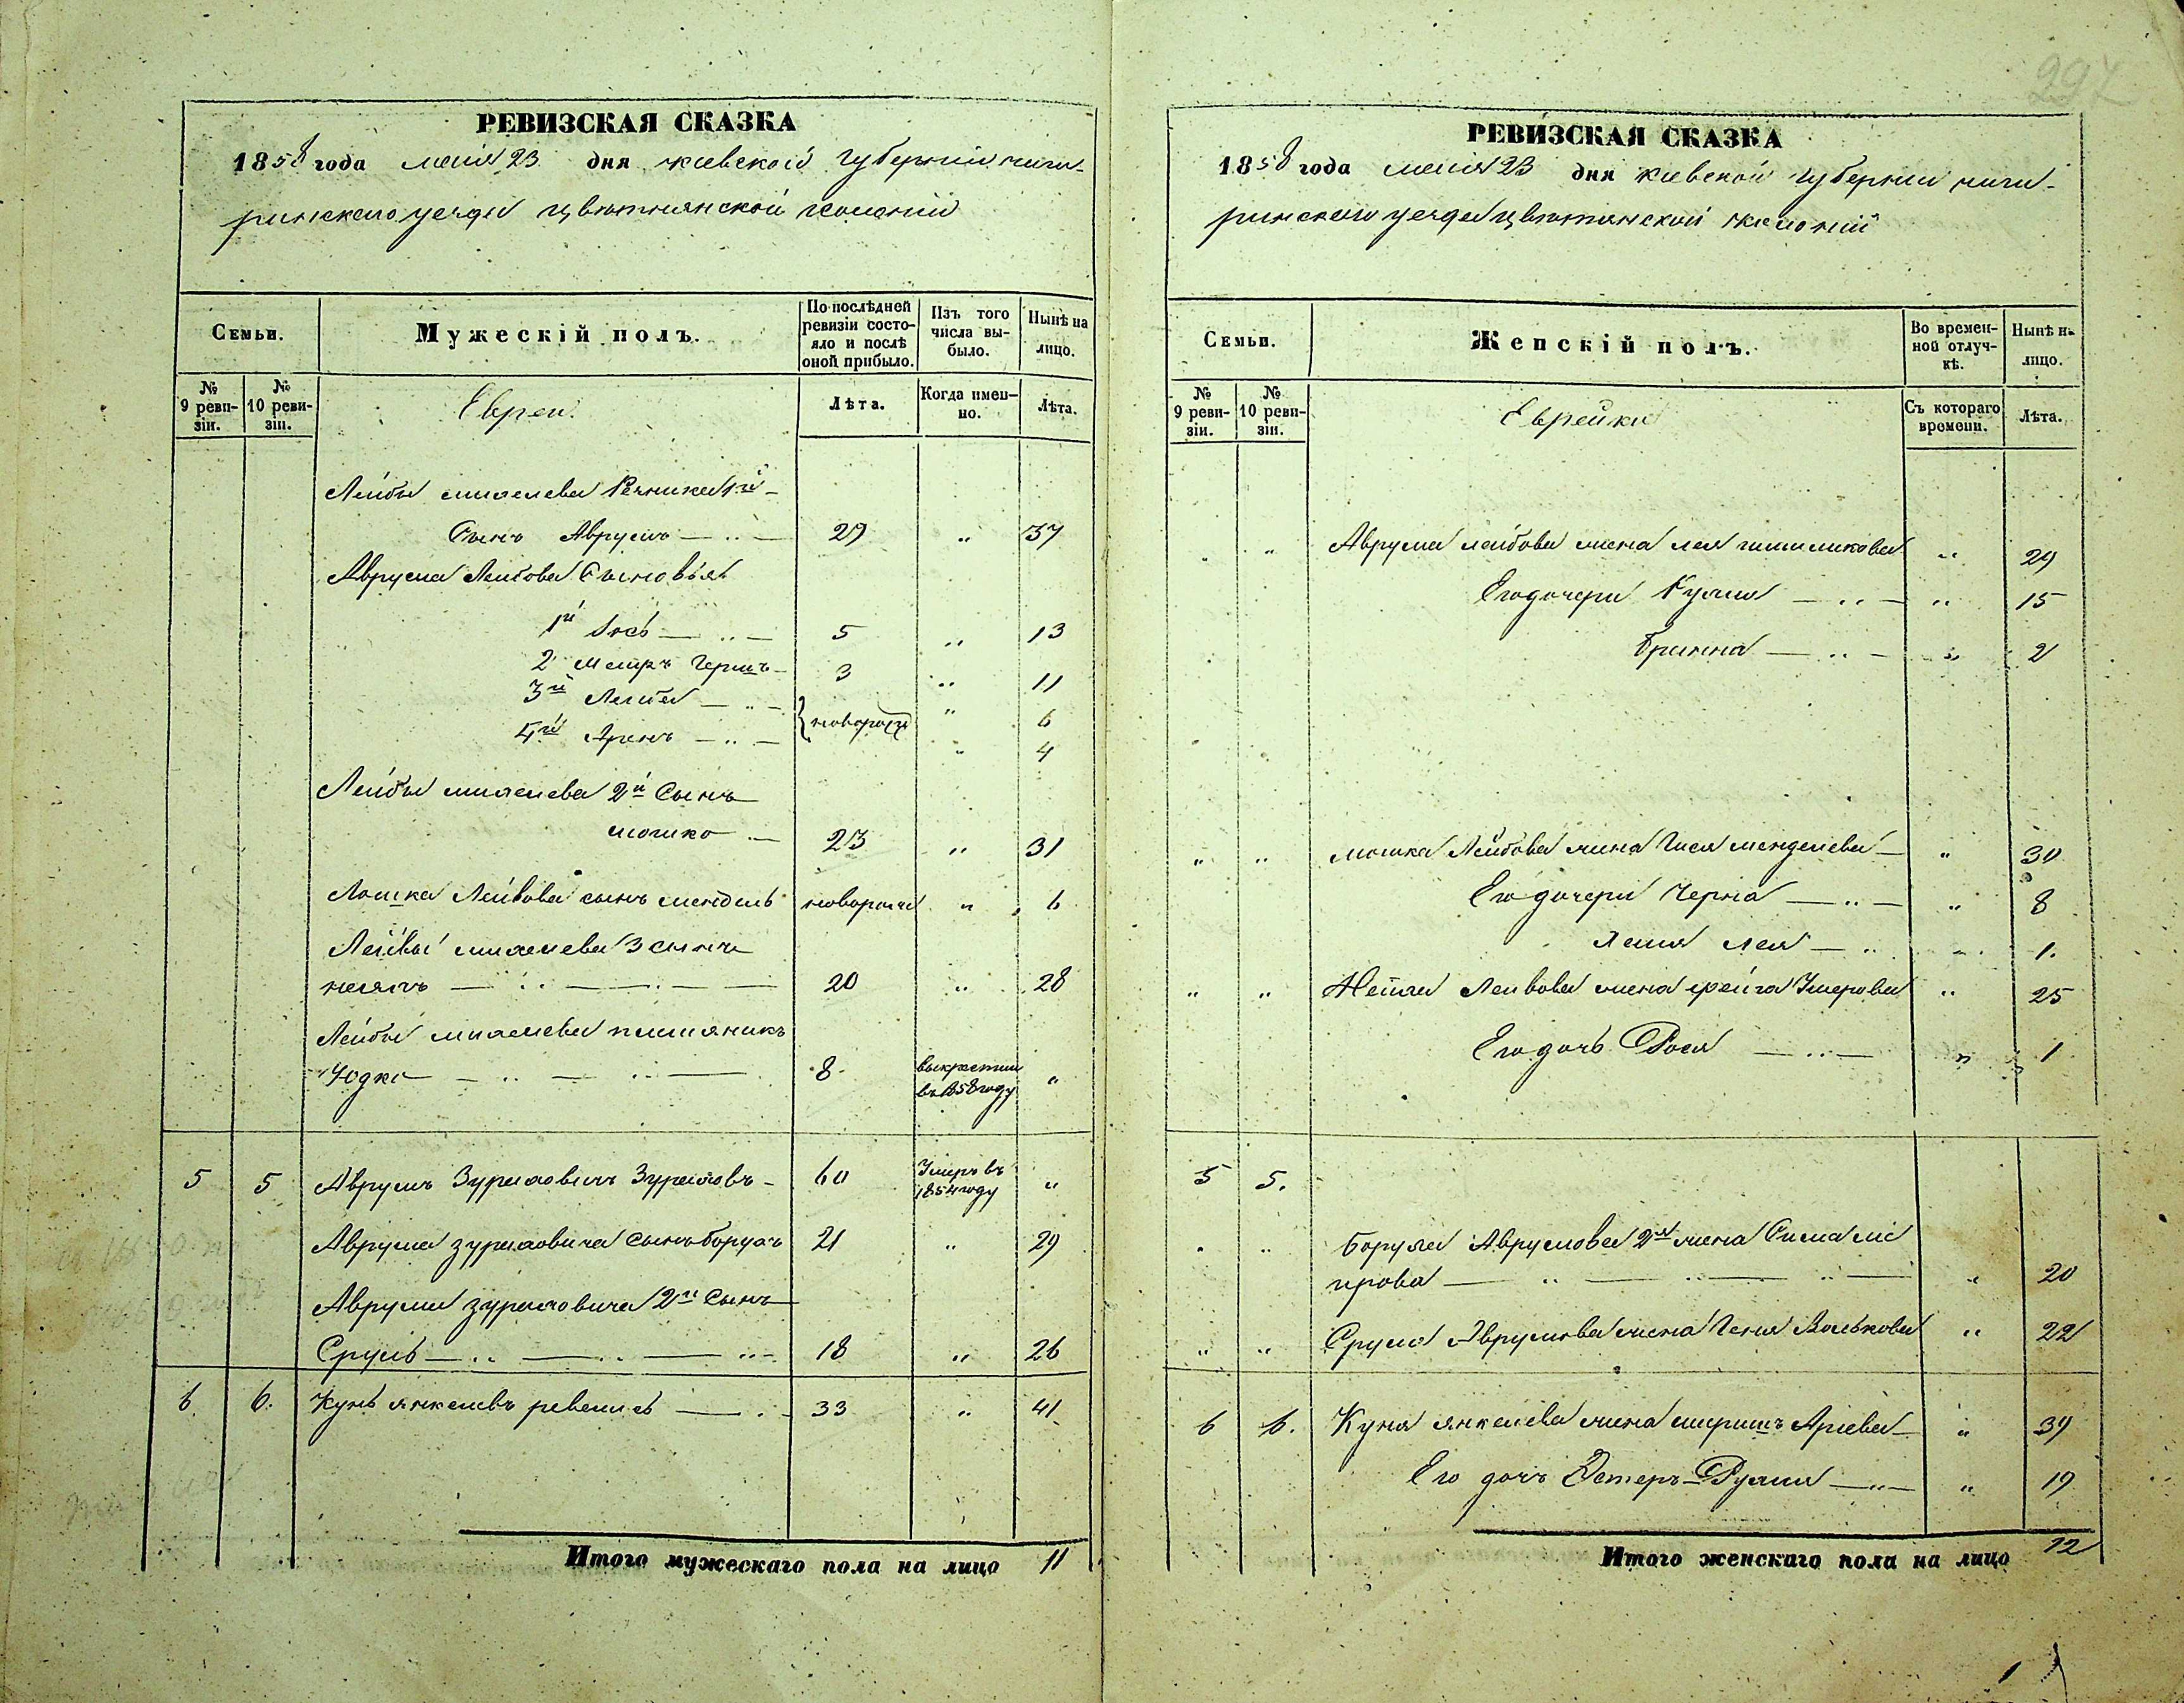 297
РЕВИЗСКАЯ СКАЗКА
1858 года мaiя 23 дня киевской губернiи чиги-
ринскаго уезда цвѣтнянской колонiи
Семьи.
Мужескiй полъ.
По послѣдней ревизiи состо-
яло и послѣ оной прибыло.
Изъ того числа вы-
было.
Нынѣ на лицо.
№ 9 реви-
зiи.
№ 10 реви-
зiи.
Евреи.
Лѣта.
Когда имен-
но.
Лѣта.
Лейбы
Сынъ Аврумъ 29 " 37
Аврума Лейбова Сыновья
1й Iось 5 " 13
2 Меиръ Гершъ 3 " 11
3й Лейба " 6
новорожд
4й Аронъ " 4
Лейбы 2й Сынъ
мошко 23 " 31
Мошка Лейбова сынъ мендель новорожд " 6
Лейбы 3 сынъ
20 " 28
Лейбы
Юдко 8 выкрестил "
въ 1858 году
5 5 Аврумъ 60 Умеръ въ "
1854 году
Аврума сынъ борухъ 21 " 29
Аврума 2й Сынъ
Сруль 18 " 26
6 6. Кунъ янкелевъ 33 " 41
Итого мужескаго пола на лицо 11
РЕВИЗСКАЯ СКАЗКА
1858 года мaiя 23 дня киевской губернiи чиги-
ринскаго уезда цвѣтянской колонiй
Семьи.
Женскiй полъ.
Во времен-
ной отлуч-
кѣ.
Нынѣ на лицо.
№ 9 реви-
зiи.
№ 10 реви-
зiи.
Еврейки
Съ котораго времени.
Лѣта.
" " Аврума лейбова жена лея " 29
Его дочери " 15
Бринна " 2
" " мошка Лейбова жена Гися менделева " 30
Его дочери Черна " 8
лея " 1.
" " Лейвова жена фейга " 25
Его дочь Рося " 1
5 5.
" " Боруха Аврумова 2я жена Сима мe
ирова " 20
" " Сруля Аврумова жена Геня Волькова " 22
6 6. Куня янкелева жена Арiева " 39
Его дочь Эстеръ " 19
Итого женскаго пола на лицо 12